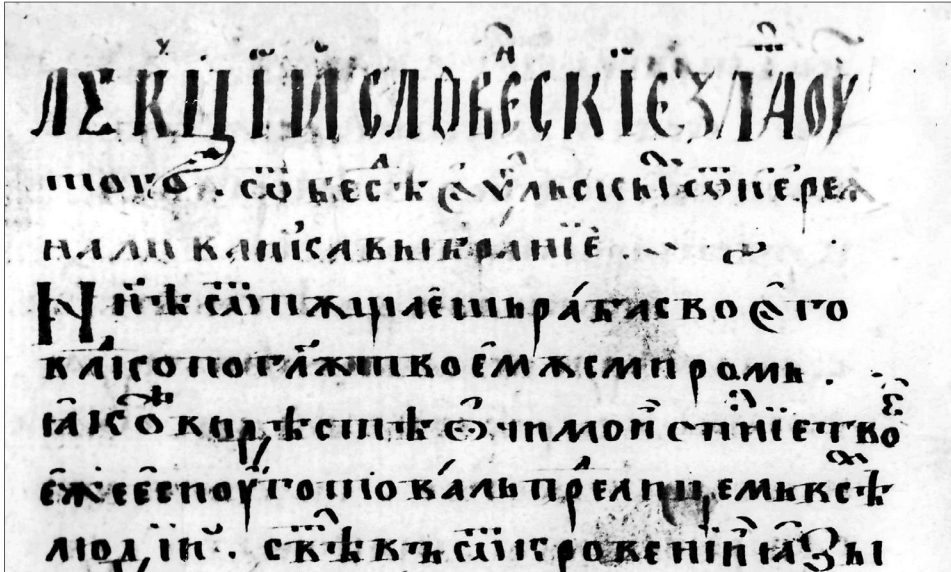 ЛЕКЦЇЙ СЛОВЕНСКЇЕ ЗЛАТОУ
стого. ѿ бесѣд еѵ҃льскы ѿ иерея
наливаика выбранїе.
Нн҃ѣ ѿпѫщаеши раба своего
вл҃ко по гл҃ѫ твоемѫ с миромь.
ꙗко видѣстѣ ѻчи мои сп҃нїе твое
еже еси оуготовалъ пред лицемь всѣх
людїи. свѣтъ въ ѿкровенїи ꙗзы